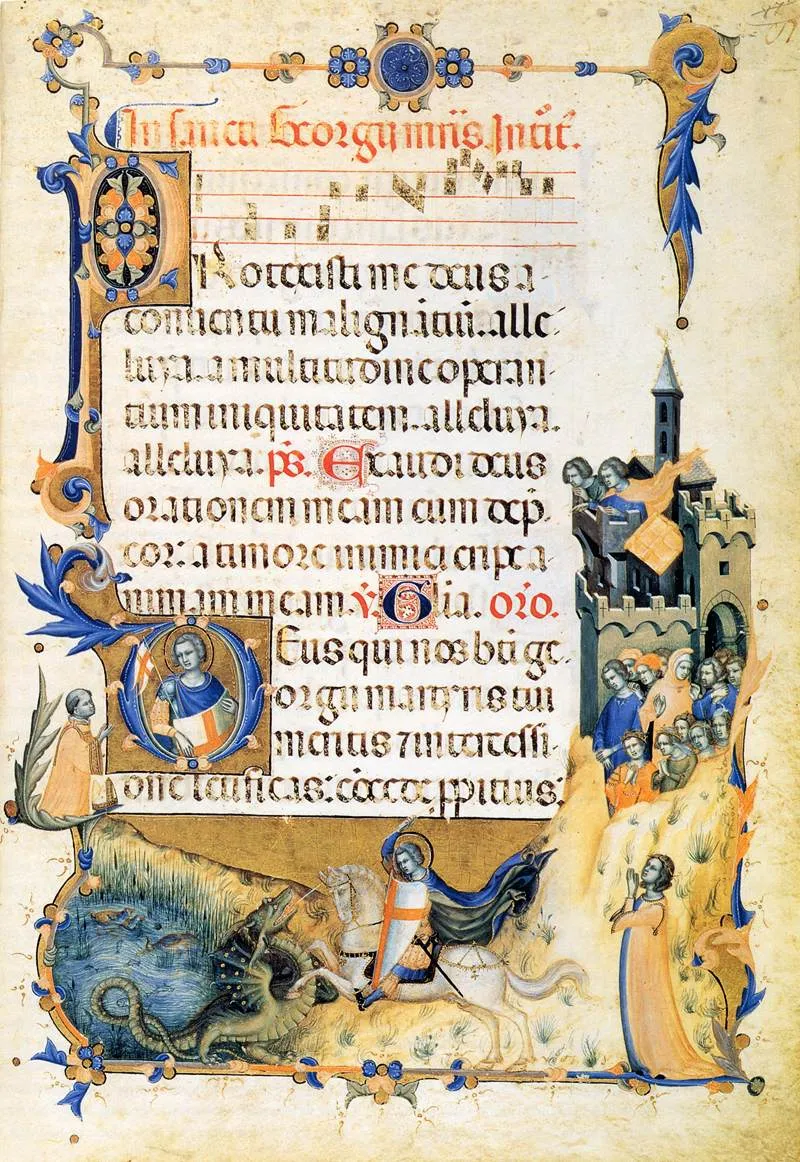 In sancti Georgii mris. Introit.
PRotexisti me deus a
conuentu malignātiū. alle
luya. a multitudine operan
tium iniquitatem. alleluya.
alleluya. ps. Exaudi deus
orationem meam cum dep̄
cor: a timore inimici eripe a
nimam meam. V. Glia. oro.
Deus qui nos bt̄i ge
orgii martyris tui
meritis ⁊ intercessi
one letificas: cōcede ppitius: